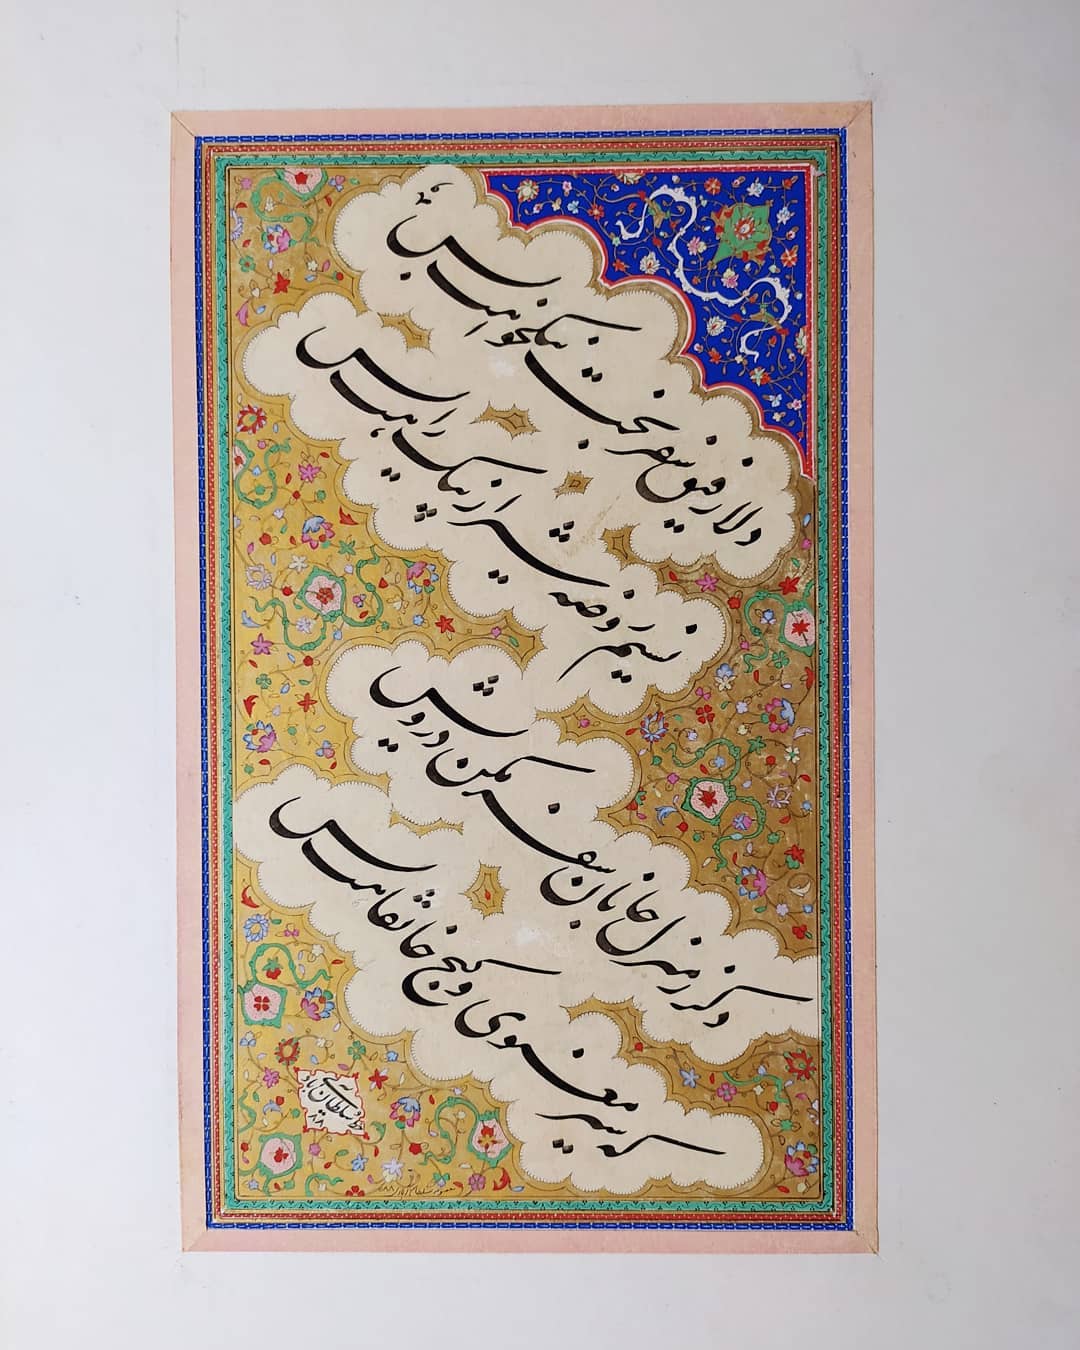 دلا رفیق سفر بخت نیکخواهت بس
نسیم روضه شیراز پیک راهت بس
دگر ز منزل جانان سفر مکن درویش
که سیر معنوی و کنج خانقاهت بس
خط وسیله سلطان آبادی
۸۸